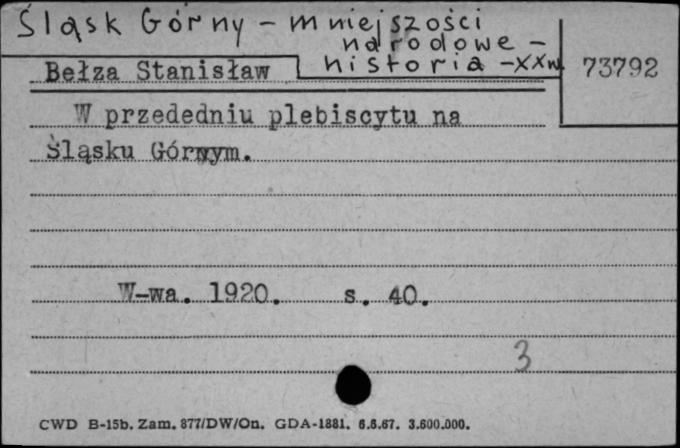 Śląsk Górny - mniejszości
narodowe -
historia - XXw.
Bełza Stanisław
73792
W przededniu plebiscytu na
Śląsku Górnym.
W-wa. 1920. s. 40.
3
CWD B-15b. Zam. 877/DW/On. GDA-1881. 6.6.67. 3.600.000.